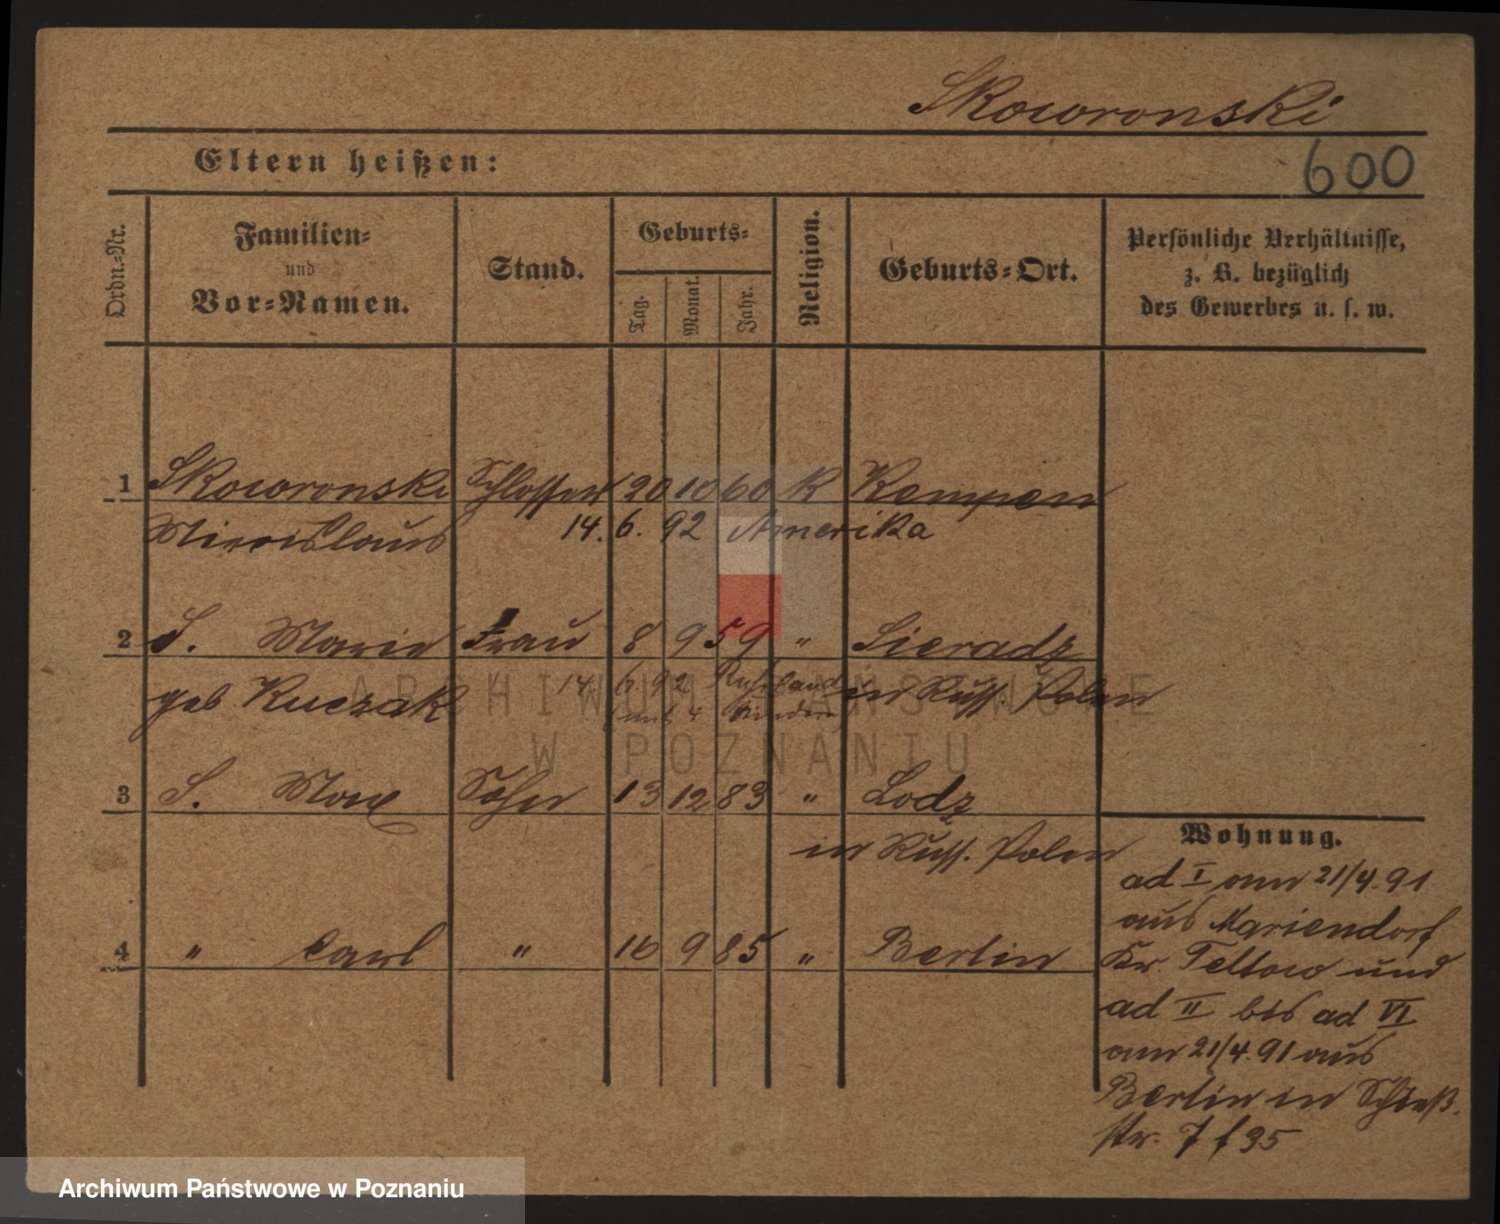 Skoworonski
Eltern heißen:
600
Ordn.-Nr.
Familien-
und
Vor-Namen.
Stand.
Geburts-
Tag.
Monat.
Jahr.
Religion.
Geburts-Ort.
Persönliche Verhältnisse,
z. B. bezüglich
des Gewerbes u. s. w.
1 Skoworonski Schlosser 20 10 60 K Kempen
Miecislaus 14. 6. 92 Amerika
2 S. Marie Frau 8 9 59 " Sieradz
geb Kuczak 14 6 92 Rußland in Russ. Polen
3 S. Max Sohn 13 12 83 " Lodz
in Russ. Polen
4 " Carl " 16 9 85 " Berlin
Wohnung.
ad I am 21/4.91
aus Mariendorf
Kr. Teltow und
ad II bis ad VI
am 21/4.91 aus
Berlin in Schieß
str. 7 f 35
ARCHIWUM PAŃSTWOWE
W POZNANIU
Archiwum Państwowe w Poznaniu